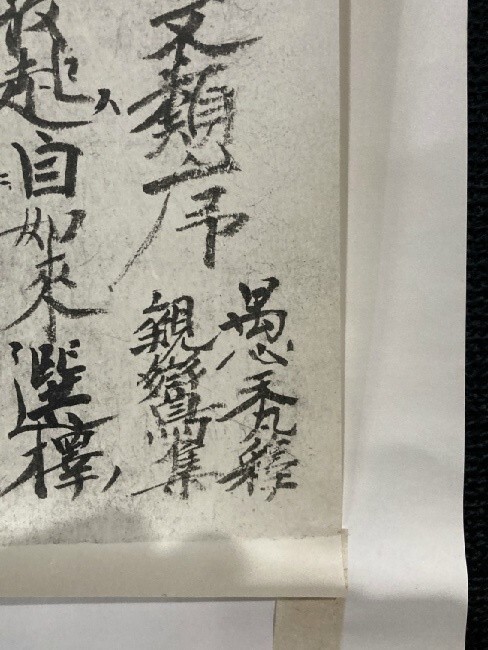 文類序
愚禿釋
親鸞集
起自如來選擇ノ